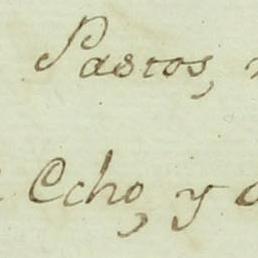 Pastos,
Ocho, y